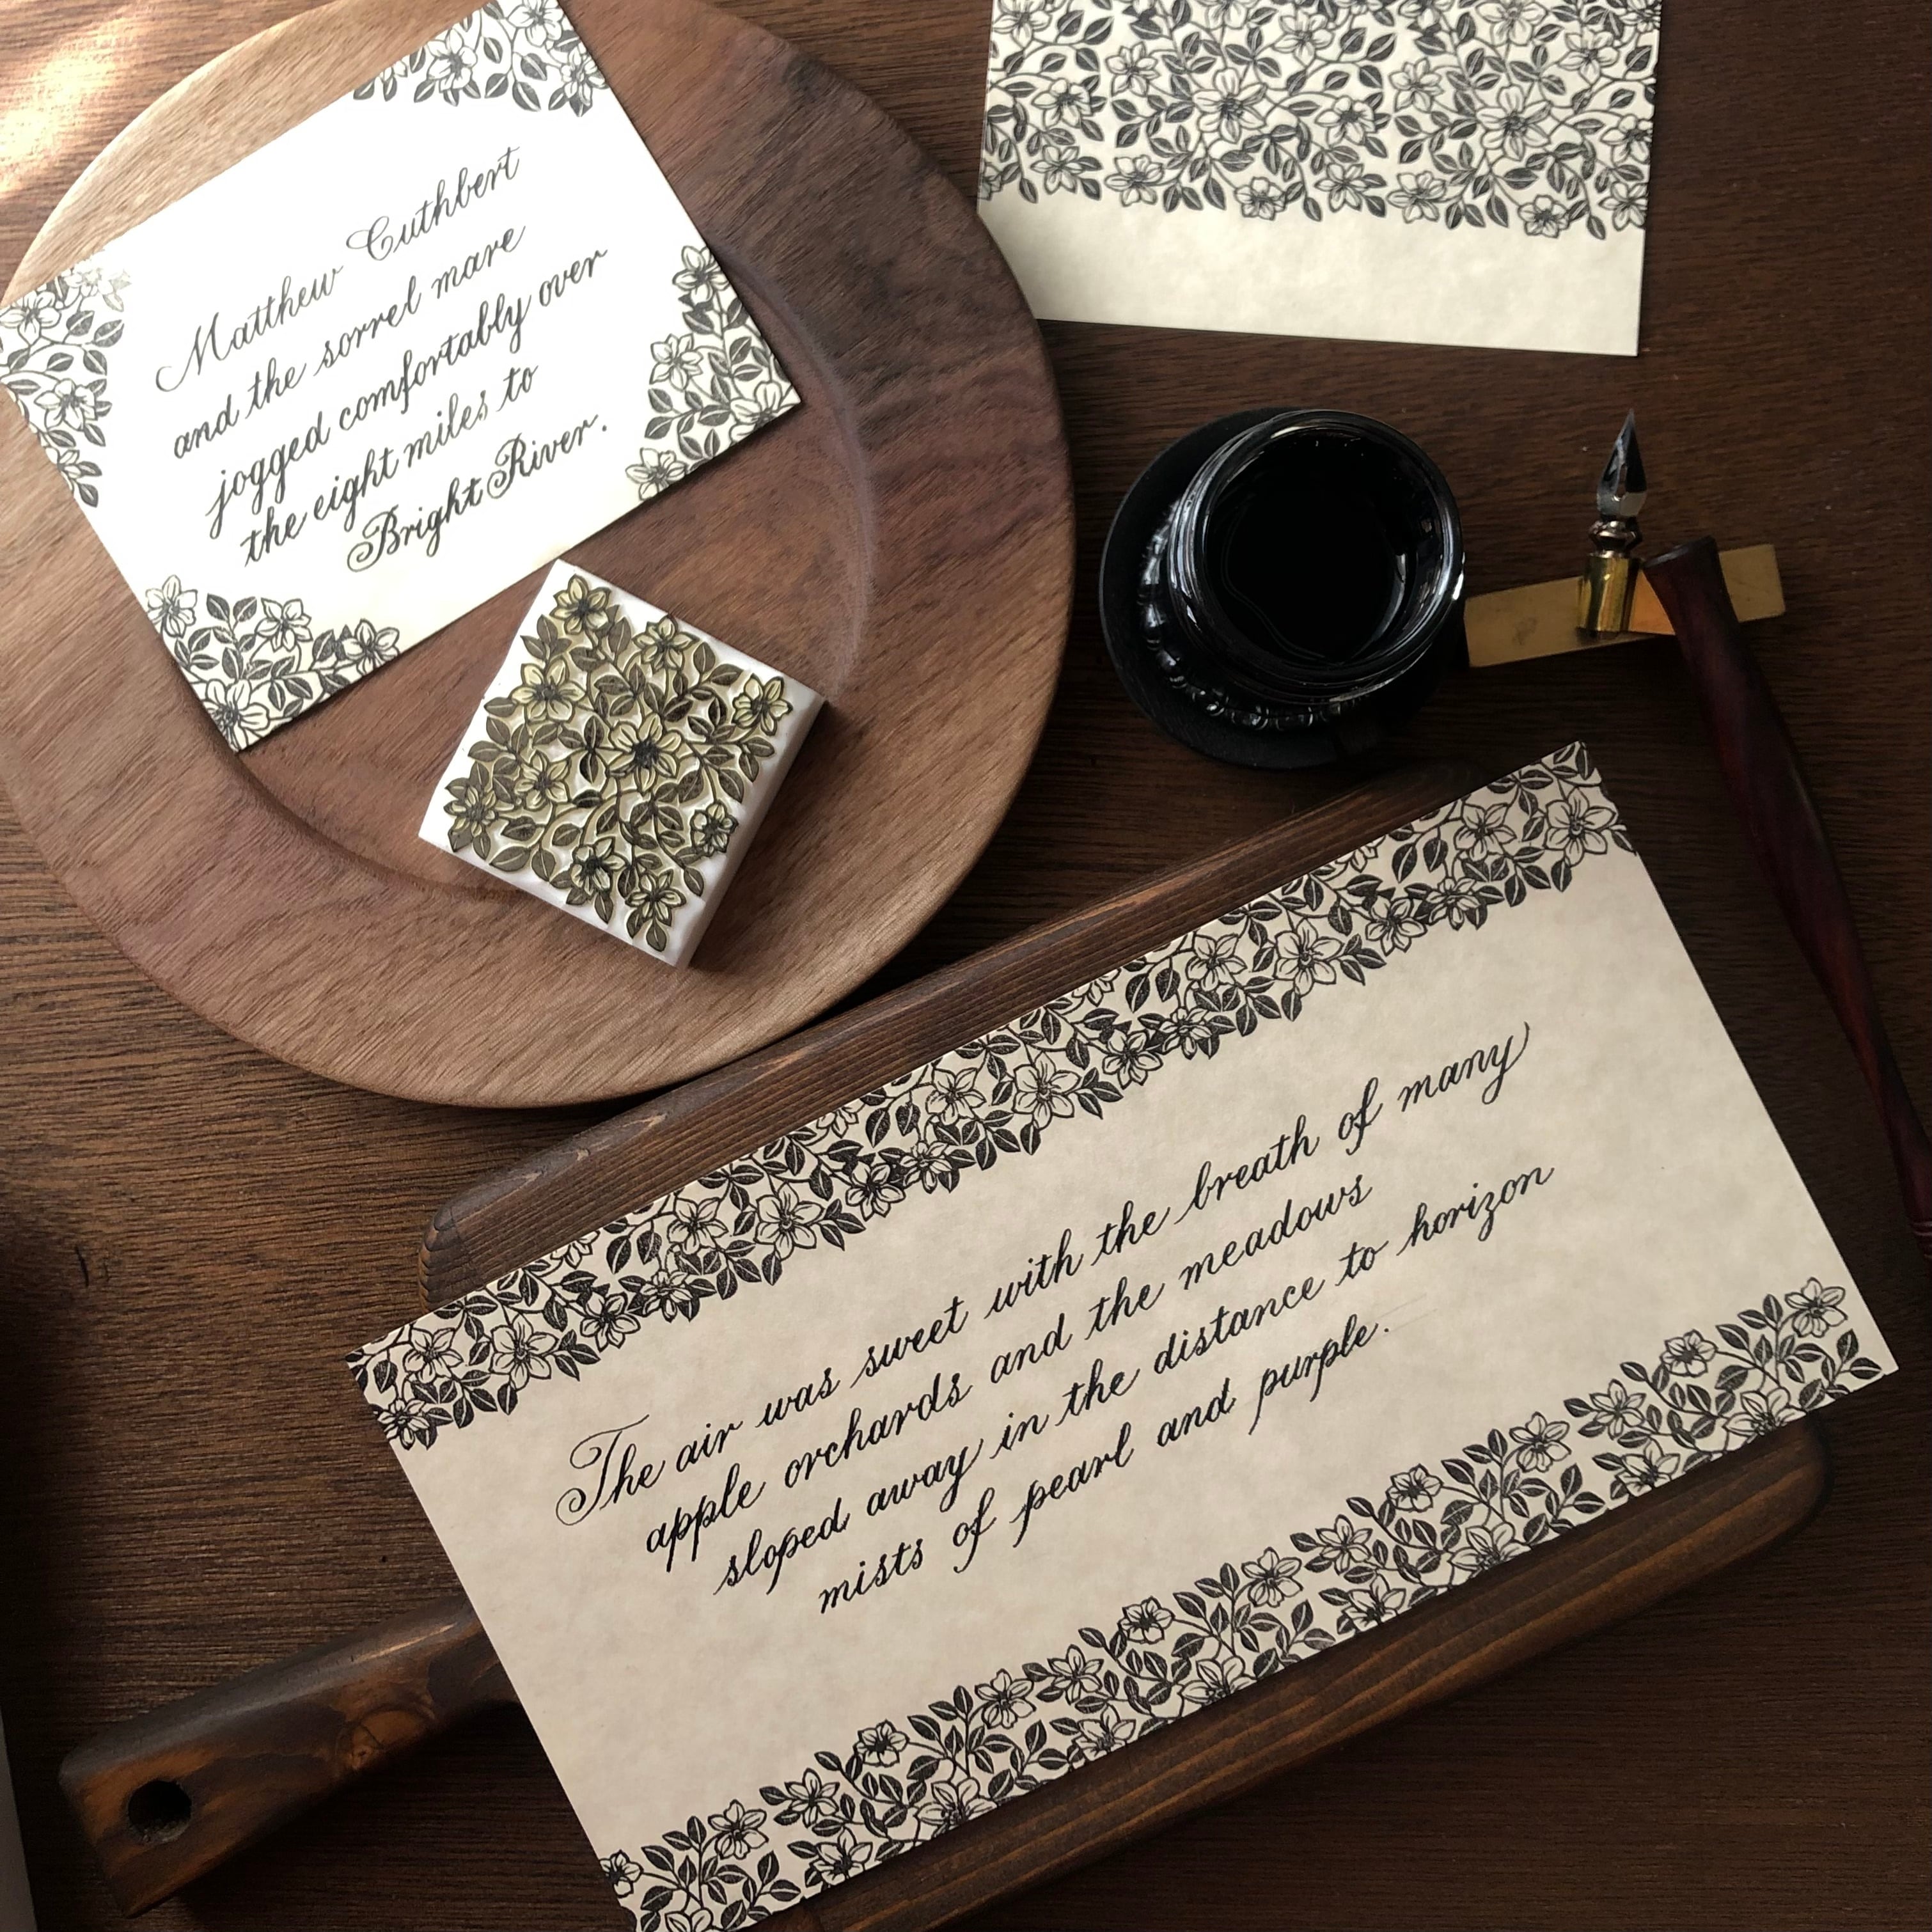 Matthew Cuthbert
and the sorrel mare
jogged comfortably over
the eight miles to
Bright River.
The air was sweet with the breath of many
apple orchards and the meadows
sloped away in the distance to horizon
mists of pearl and purple.